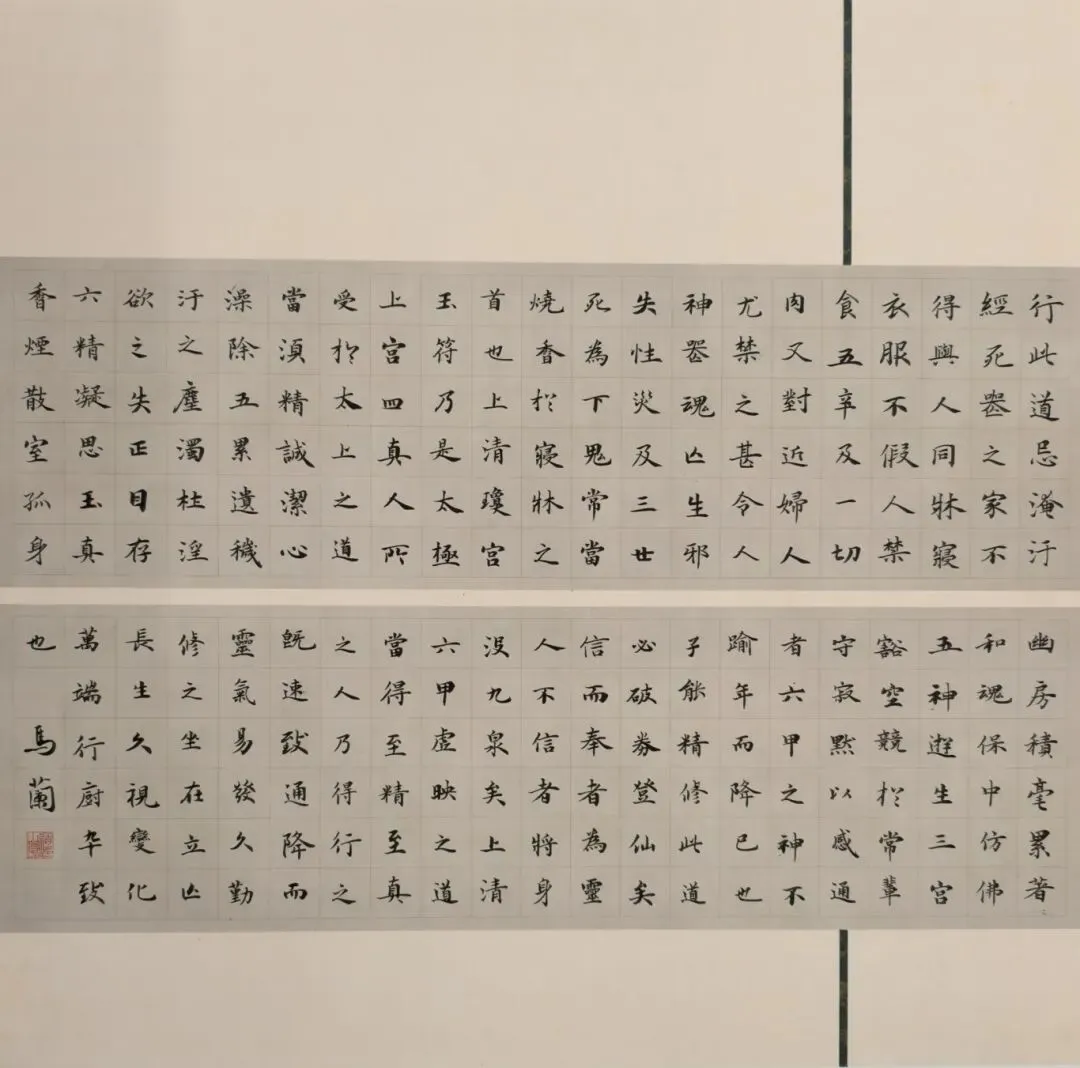 行此道忌淹汙
經死喪之家不
得與人同牀寢
衣服不假人禁
食五辛及一切
肉又對近婦人
尤禁之甚令人
神喪魂亡生邪
失性災及三世
死為下鬼常當
燒香於寢牀之
首也上清瓊宮
玉符乃是太極
上宮四真人所
受於太上之道
當須精誠潔心
澡除五累遺穢
汙之塵濁杜淫
欲之失正目存
六精凝思玉真
香煙散室孤身
幽房積毫累著
和魂保中仿佛
五神遊生三宮
豁空競於常輩
守寂默以感通
者六甲之神不
踰年而降已也
子能精修此道
必破券登仙矣
信而奉者為靈
人不信者將身
沒九泉矣上清
六甲虛映之道
當得至精至真
之人乃得行之
既速致通降而
靈氣易發久勤
修之坐在立亡
長生久視變化
萬端行廚卒致
也 馬蘭